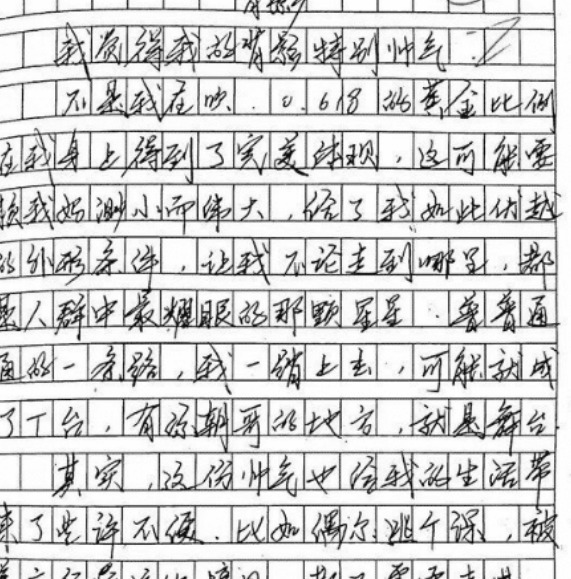 我觉得我的背影特别帅气.
不是我在吹.0.618的黄金比例
在我身上得到了完美体现,这可能要
我妈渺小而伟大,给了我如此优越
的外形条件,让我不论走到哪里,都
是人群中最耀眼的那颗星星.普普通
通的一条路,我一踏上去,可能就成
了T台,有孙朝哥的地方,就是舞台.
其实,这份帅气也给我的生活带
来了些许不便.比如偶尔逃个课,被